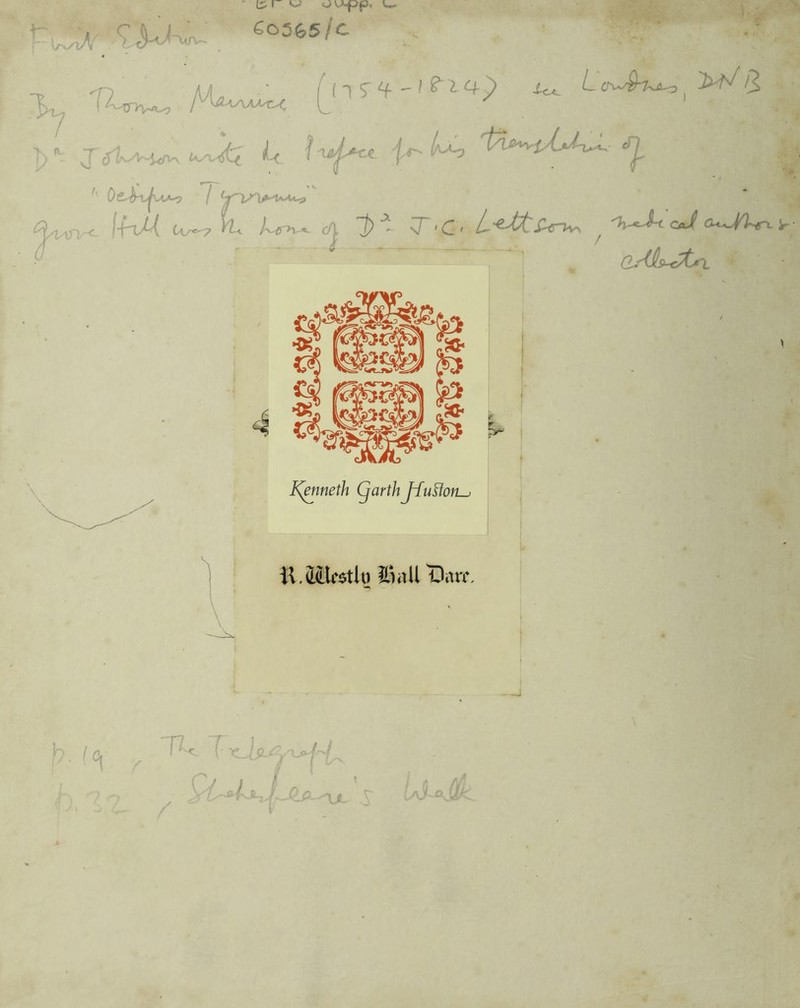 60565/C
First Edition
By Thomas Maurice (1754-1824) see Lowndes, DNB
Dr. Johnson wrote the preface for his translation of
"Oedipus Tyrannus"
Grove Hill was the home of Dr. J.C. Lettsom, medical author &
collector
Kenneth Garth Huston
R. Westly Hall Dare.
p. 19, The Telegraph
p. 32, Shakespeare's Walk